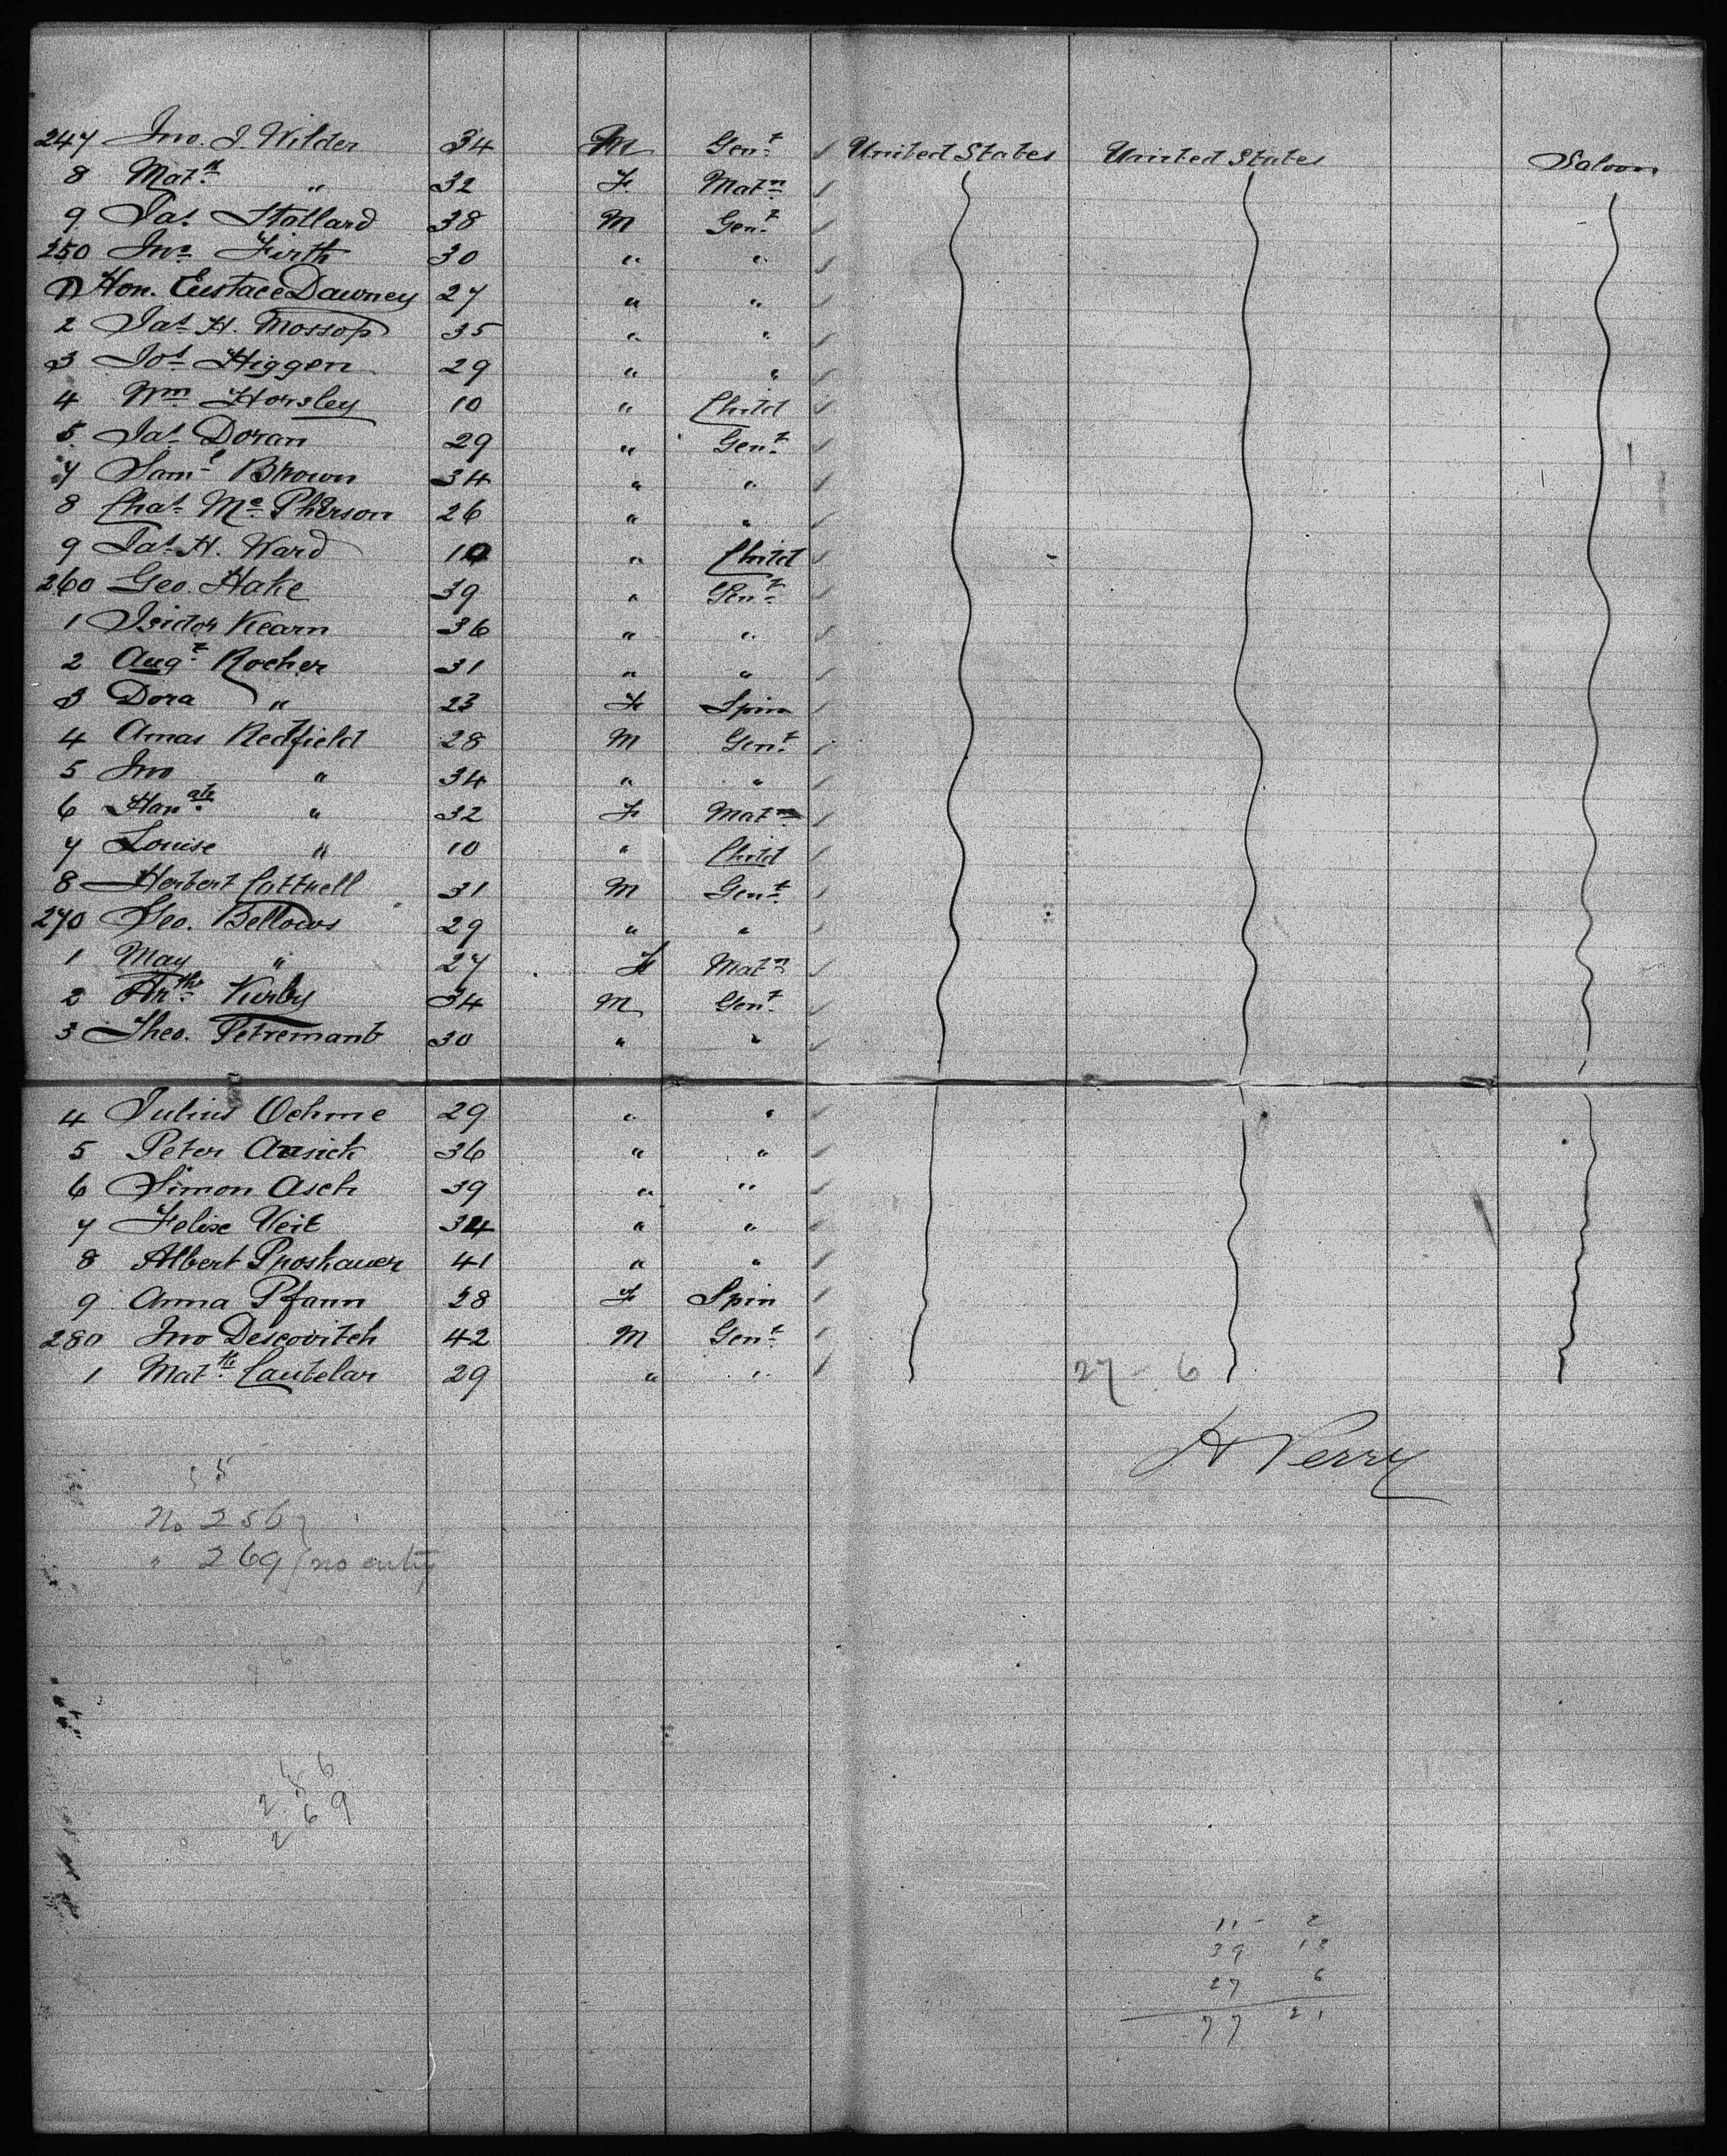 247 Jno. J. Wilder 34 M Gent United States United States Saloon
8 Math " 32 F Matn
9 Jas Stollard 38 M Gent
250 Jno Firth 30 " "
1 Hon. Eustace Dawney 27 " "
2 Jas H. Mossop 35 " "
3 Jos Higgen 29 " "
4 Wm Horsley 10 " Child
5 Jas Doran 29 " Gent
7 Saml Brown 34 " "
8 Chas McPherson 26 " "
9 Jas H. Ward 10 " Child
260 Geo. Hake 39 " Gent
1 Isidor Kearn 36 " "
2 Augt Rocher 31 " "
3 Dora " 23 F Spin
4 Amas Redfield 28 M Gent
5 Jno " 34 " "
6 Hanah " 32 F Matn
7 Louise " 10 " Child
8 Herbert Cattnell 31 M Gent
270 Geo. Bellows 29 " "
1 May " 27 F Matn
2 Arthr Kurby 34 M Gent
3 Theo. Petremant 30 " "
4 Julius Oehme 29 " "
5 Peter Ausich 36 " "
6 Simon Asch 39 " "
7 Felix Veit 34 " "
8 Albert Proskauer 41 " "
9 Anna Pfann 28 F Spin
280 Jno Descovitch 42 M Gent
1 Matth Cautelar 29 " "
27 - 6
H Perry
No 256
" 269 } no entry
2 5 6
2 6 9
11 - 2
39 13
27 6
77 21